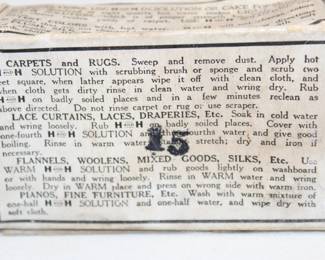 CARPETS and RUGS. Sweep and remove dust. Apply hot
H H SOLUTION with scrubbing brush or sponge and scrub two
feet square, when lather appears wipe it off with clean cloth, and
when cloth gets dirty rinse in clean water and wring dry. Rub
H H on badly soiled places and in a few minutes reclean as
above directed. Do not rinse carpet or rug or use scraper.
LACE CURTAINS, LACES, DRAPERIES, Etc. Soak in cold water
and wring loosely. Rub H H on badly soiled places. Cover with
one-fourth H H SOLUTION and three-fourths water and give good
boiling. Rinse in warm water, stretch; dry and iron if
necessary.
15
FLANNELS, WOOLENS, MIXED GOODS, SILKS, Etc. Use
WARM H H SOLUTION and rub goods lightly on washboard
or with hands and wring loosely. Rinse in WARM water and wring
loosely. Dry in WARM place and press on wrong side with warm iron.
PIANOS, FINE FURNITURE, Etc. Wash with warm mixture of
one-half H H SOLUTION and one-half water, and wipe dry with
soft cloth.